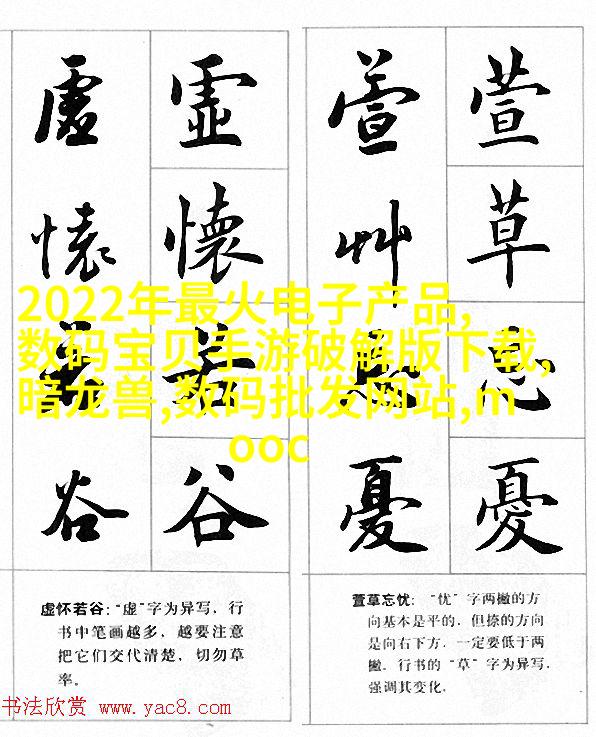 虛懷若谷
虛懷若谷
萱艸忘憂
萱草忘憂
2022年最火电子产品,
数码宝贝手游破解版下载,
暗龙兽,数码批发网站,m
ooc
虚怀若谷:“虚”字为异写，行
书中笔画越多，越要注意
把它们交代清楚，切勿草
率。
萱草忘忧:“忧”字两撇的方
向基本是平的，但捺的方向
是向右下方，一定要低于两
撇。行书的“草”字为异写，
强调其变化。
书法欣赏 www.yac8.com